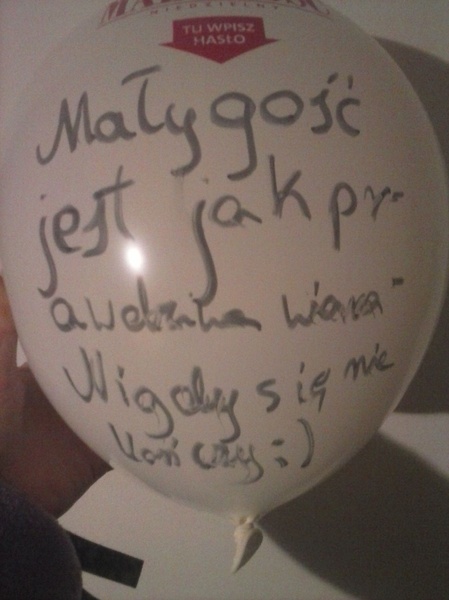 NIEDZIELNY
TU WPISZ
HASŁO
Mały gość
jest jak pr-
awdziwa wiara"
Nigdy się nie
kończy ;)